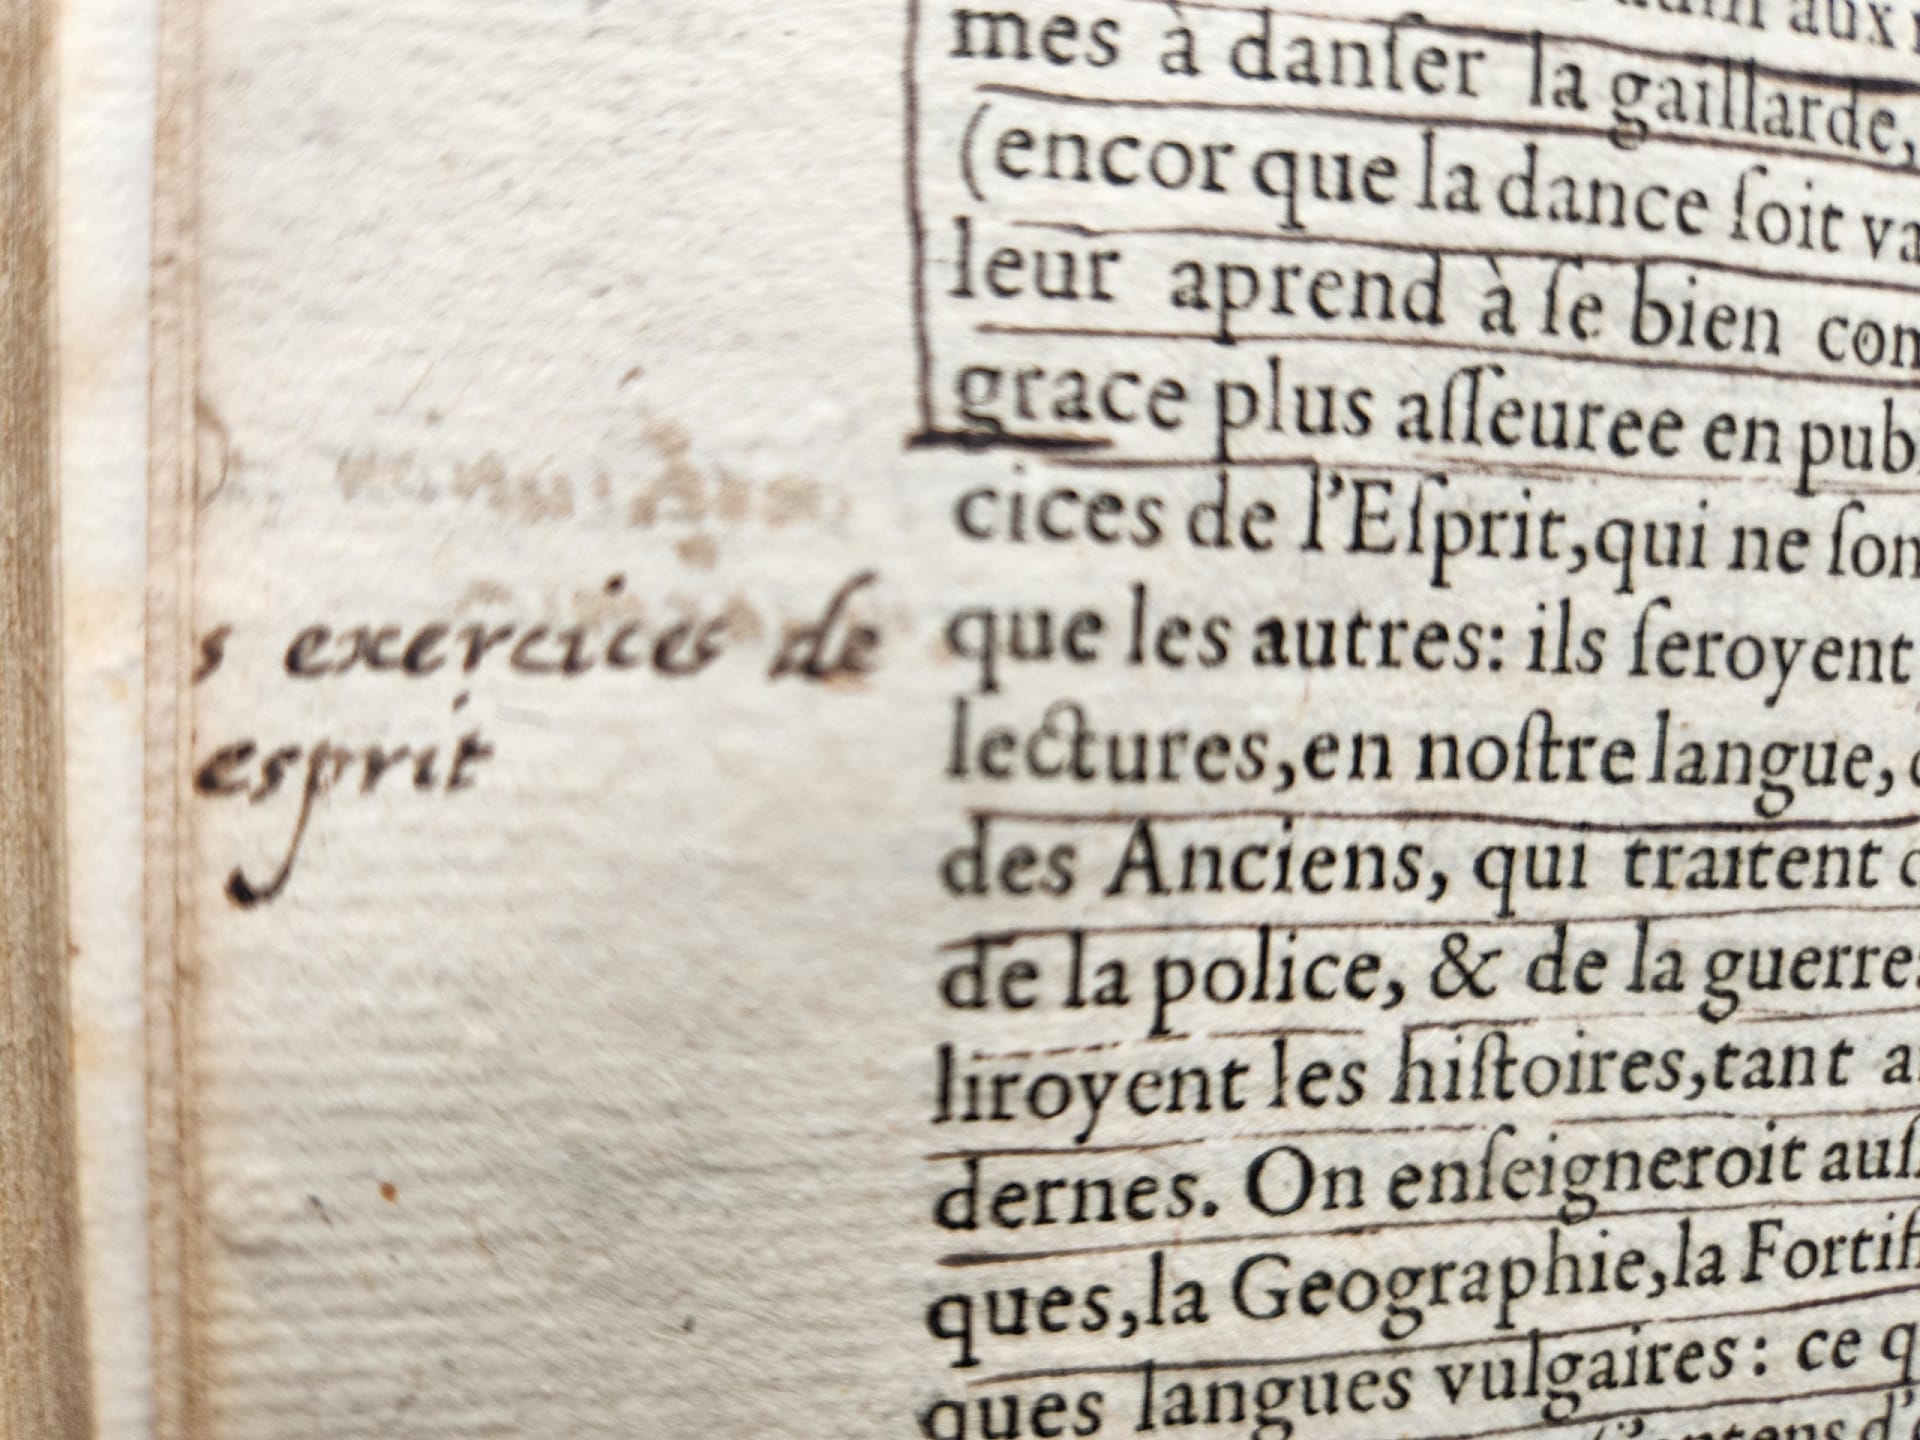 aux
mes à danſer la gaillarde,
(encor que la dance ſoit
leur aprend à ſe bien
grace plus aſſeuree en
cices de l'Eſprit, qui ne
que les autres: ils ſeroyent
lectures, en noſtre langue,
des Anciens, qui traitent
de la police, & de la guerre
liroyent les hiſtoires, tant
dernes. On enſeigneroit
ques, la Geographie, la
ques langues vulgaires: ce
s exercices de
esprit